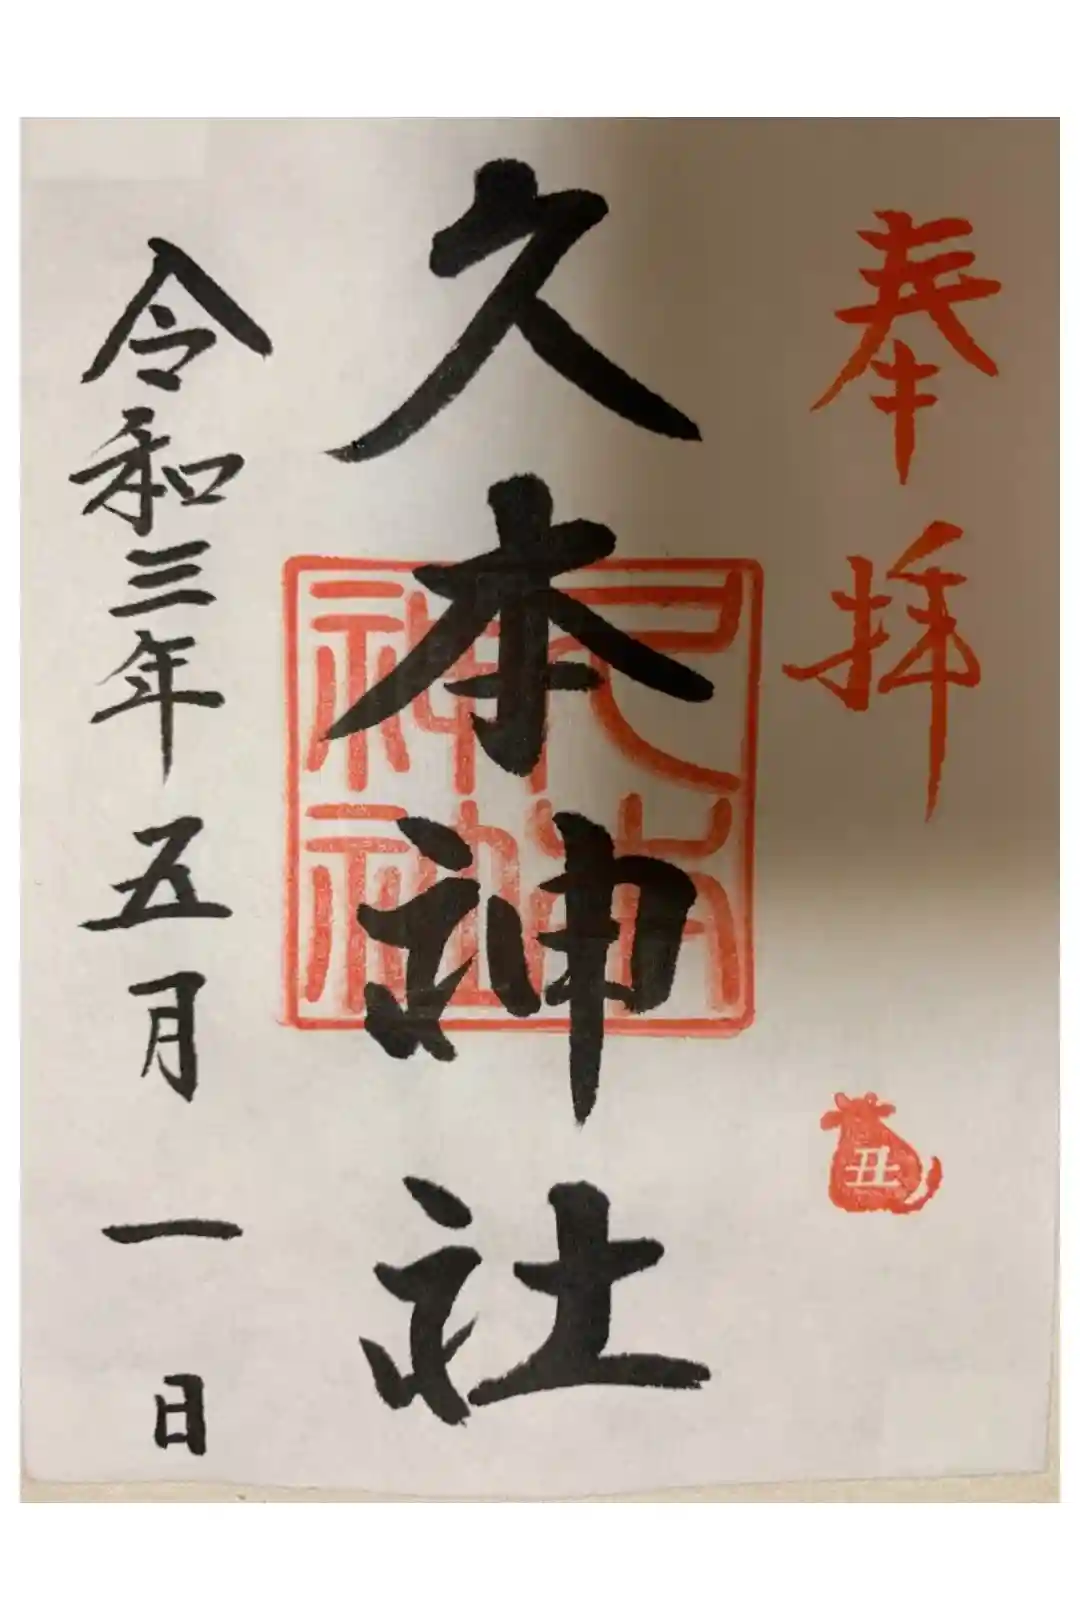 奉拝
丑
久本神社
久本
神社
令和三年五月一日